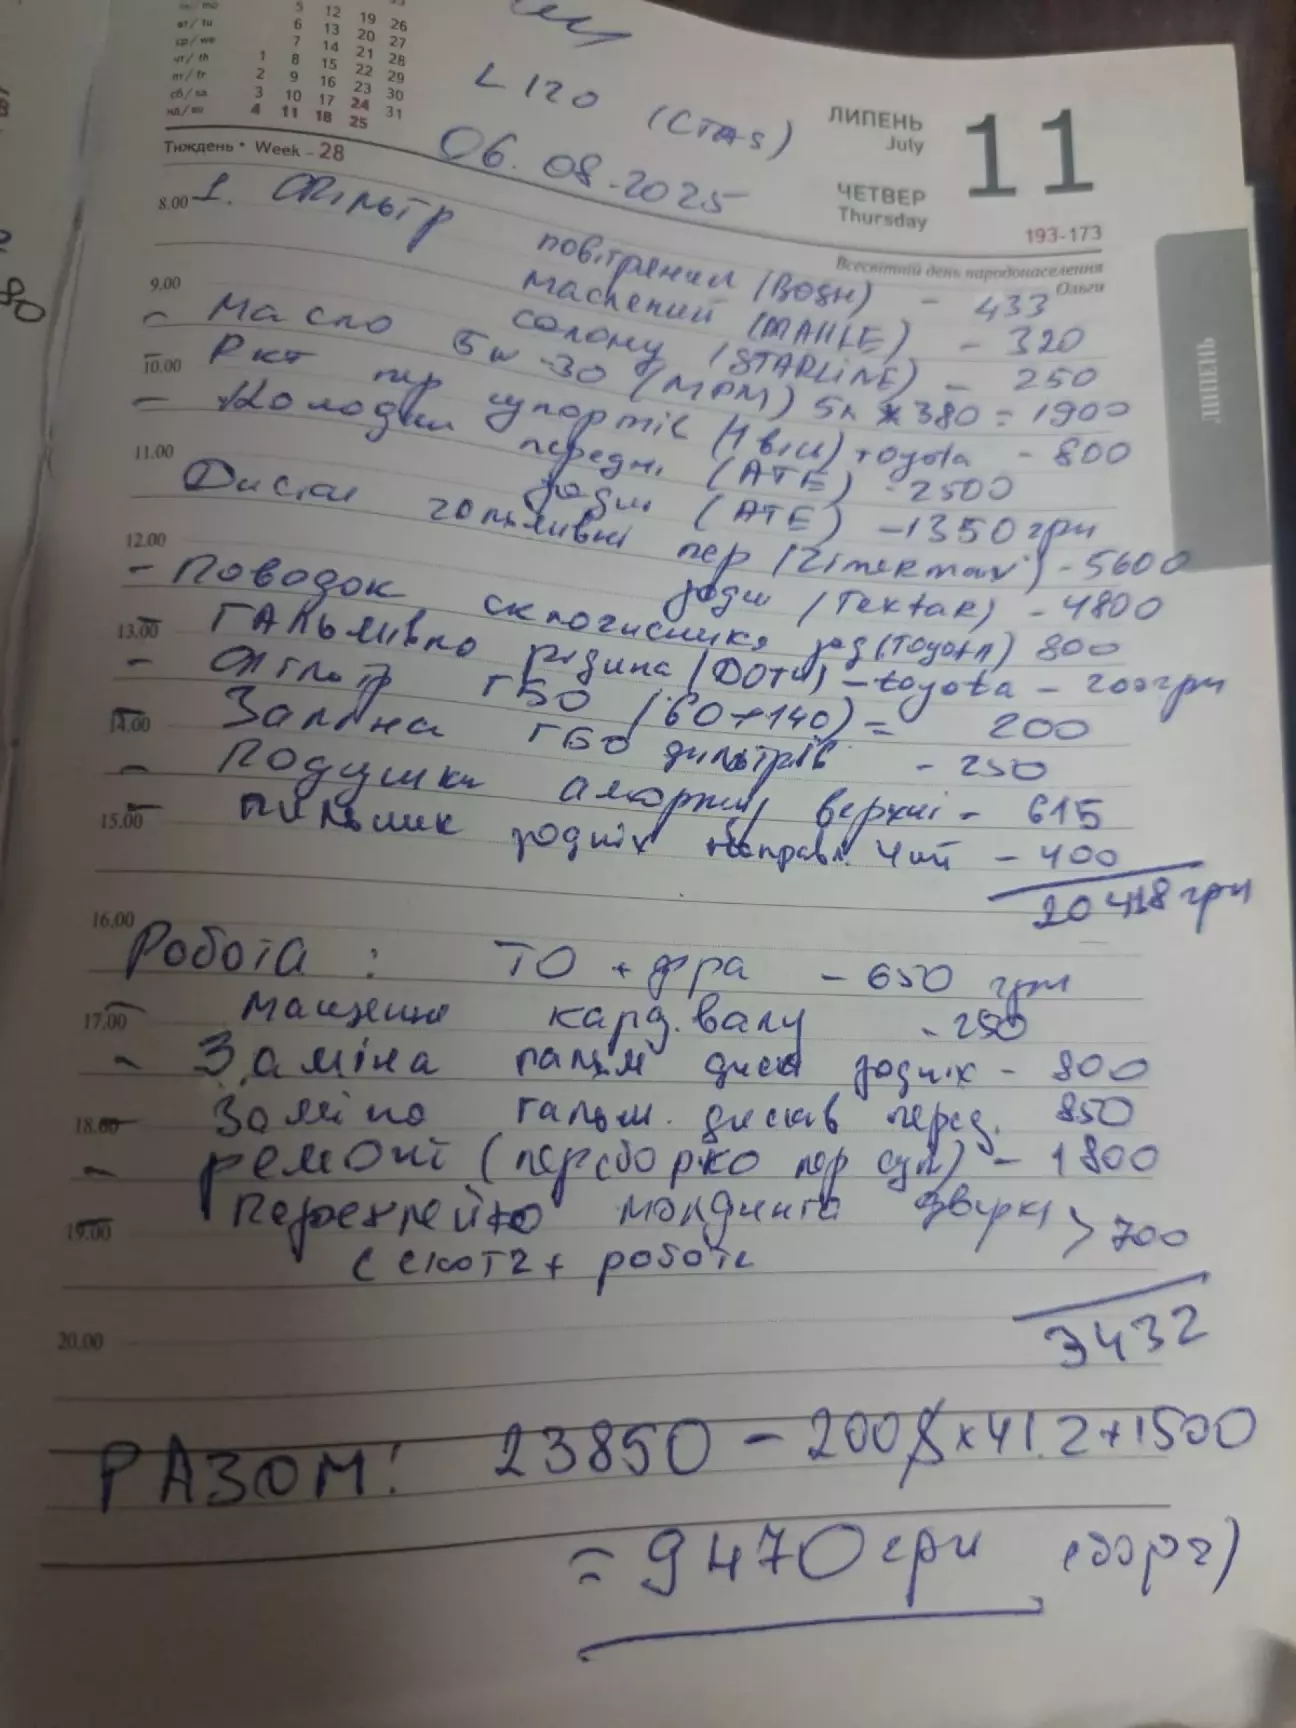 5 12 19 26
вт/tu 6 13 20 27
ср/we 7 14 21 28
чт/th 1 8 15 22 29
пт/fr 2 9 16 23 30
сб/sa 3 10 17 24 31
нд/su 4 11 18 25
Тиждень • Week - 28
L120 (СТАS)
06.08.2025
ЛИПЕНЬ
July
11
ЧЕТВЕР
Thursday
193-173
Всесвітній день народонаселення
Ольги
ЛИПЕНЬ
80
8.00 1. Фільтр повітряний (BOSH) - 433
масляний (MAHLE) - 320
9.00 салону (STARLINE) - 250
- Масло 5w-30 (MPM) 5л x 380 = 1900
10.00 - Ркт пер супортів () toyota - 800
- Колодки передні (ATE) - 2500
11.00 задні (ATE) - 1350 грн
Диски гальмівні пер (Zimermax) - 5600
12.00 задні (TextaR) - 4800
- Поводок склочисника зад (Toyota) 800
13.00 - Гальмівна рідина (DOT4) - toyota - 200 грн
- Фільтр ГБО (60+140) = 200
14.00 - Заміна ГБО фільтрів - 250
- Подушки аморт верхні - 615
15.00 - Пильник задніх направл. чий - 400
20418 грн
16.00
Робота: ТО + - 650 грн
17.00 - мащення кард. валу - 250
- Заміна гальм диск задніх - 800
18.00 - Заміна гальм. дисків перед. 850
- ремонт (переборка пер суп) - 1800
19.00 - Переклейка молдинга дверки > 700
(скотч + робота
3432
20.00
РАЗОМ: 23850 - 200$ x 41.2 + 1500
= 9470 грн (борг)